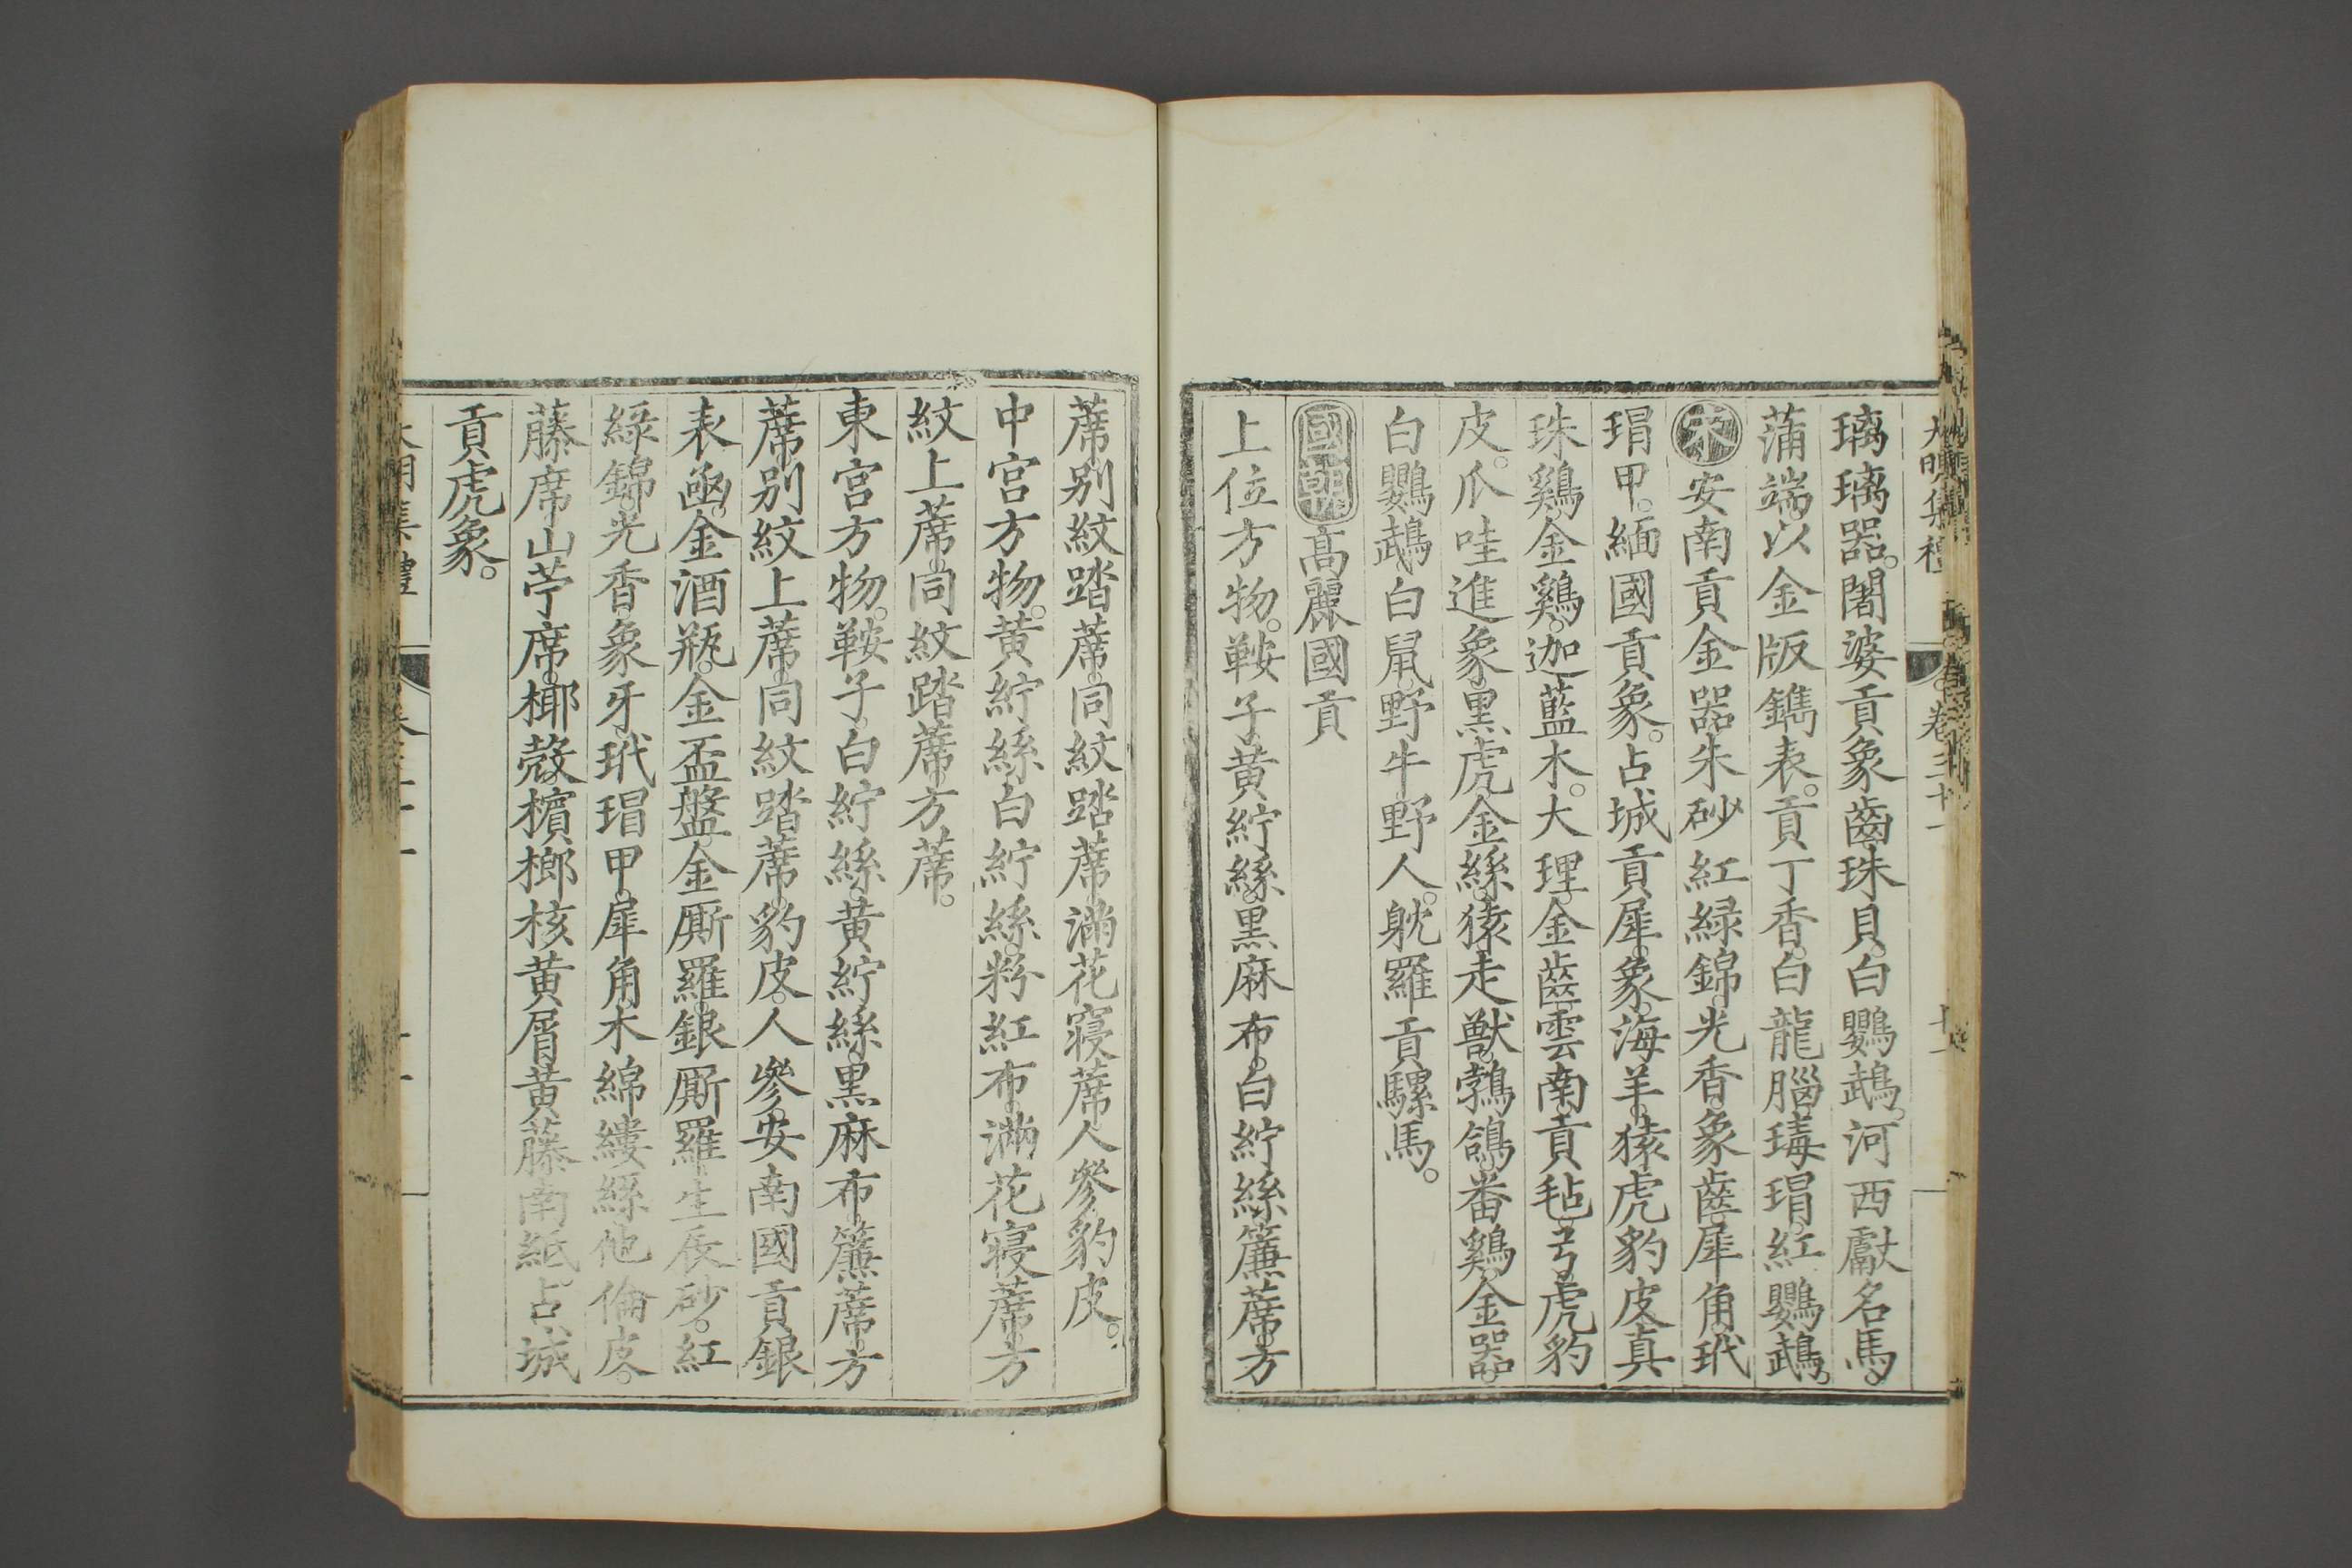 大明集禮 卷三十一
璃璃器。闍婆貢象齒珠貝。白鸚鵡。河西獻名馬。
蒲端。以金版鐫表。貢丁香。白龍腦。瑇瑁。紅鸚鵡。
安南貢金器朱砂紅緑錦。光香。象齒犀角。玳
瑁甲。緬國貢象。占城貢犀。象。海羊。猿虎豹皮真
珠鷄。金鷄。迦藍木。大理。金齒雲南。貢氊弓。虎豹
皮。爪哇進象。黒虎金絲。猿。走獸。鵓鴿。番鷄。金器。
白鸚鵡白鼠。野牛野人。躭羅貢騾馬。
國朝高麗國貢
上位方物。鞍子黄紵絲。黒麻布。白紵絲。簾蓆。方
蓆。别紋踏蓆。同紋踏蓆。滿花寝蓆人參豹皮。
中宫方物。黄紵絲白紵絲。粉紅布。滿花寝蓆。方
紋上蓆。同紋踏蓆方蓆。
東宫方物。鞍子。白紵絲。黄紵絲。黒麻布。簾蓆。方
蓆。别紋上蓆。同紋踏蓆。豹皮。人參。安南國貢銀
表凾。金酒瓶。金盃盤。金厮羅。銀厮羅生辰砂。紅
緑錦。光香象牙。玳瑁甲。犀角。木綿縷絲他倫皮。
藤席山苧席。椰殻。檳榔核黄屑黄藤南紙。占城
貢虎象。
大明集禮 卷三十一